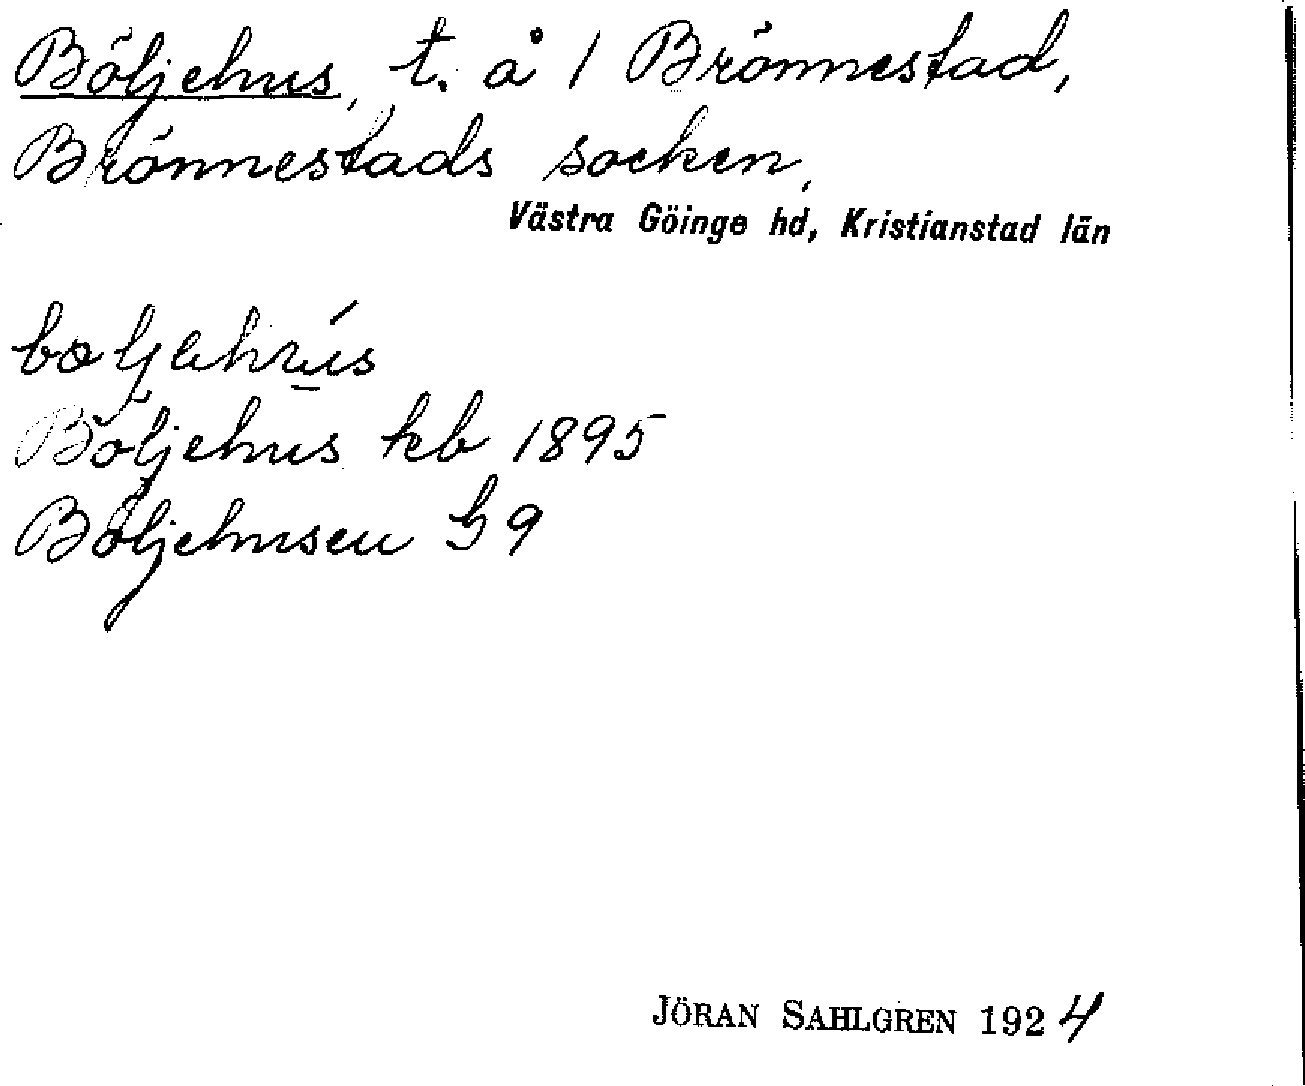 Böljehus, t. å 1 Brönnestad,
Brönnestads socken,
Västra Göinge hd, Kristianstad län
Böljehus kb 1895
Böljehusen G 9
JÖRAN SAHLGREN 1924